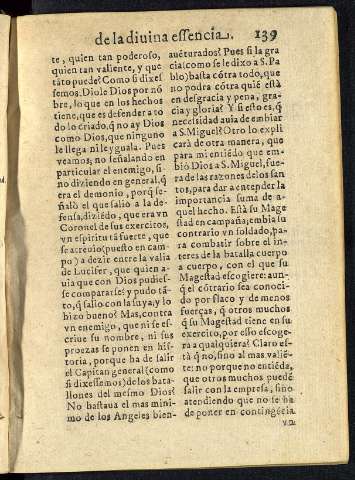 de la diuina essencia. 139
te, quien tan poderoso,
quien tan valiente, y que
tãto puede? Como si dixes
semos. Diole Dios por nõ
bre, lo que en los hechos
tiene, que es defender a to
do lo criado, q̃ no ay Dios
como Dios, que ninguno
le llega ni le yguala. Pues
veamos; no señalando en
particular el enemigo, si-
no diziendo en general, q̃
era el demonio, porq̃ se-
ñalò el que salio a la de-
fensa, diziẽdo, que era vn
Coronel de sus exercitos,
vn espiritu tã fuerte, que
se atreuio (puesto en cam-
po) a dezir entre la valia
de Lucifer, que quien a-
uia que con Dios pudies-
se compararse? y pudo tã-
to, q̃ salio con la suya, y lo
hizo bueno? Mas, contra
vn enemigo, que ni se es-
criue su nombre, ni sus
proezas se ponen en his-
toria, porque ha de salir
el Capitan general (como
si dixessemos) de los bata-
llones del mesmo Dios?
No bastaua el mas mini-
mo de los Angeles bien-
auẽturados? Pues si la gra
cia (como se le dixo a S. Pa
blo) basta cõtra todo, que
no podra cõtra quiẽ està
en desgracia y pena, gra-
cia y gloria? Y si esto es, q̃
necessidad auia de embiar
a S. Miguel? Otro lo expli
carà de otra manera, que
para mi entiẽdo que em-
biò Dios a S. Miguel, fue-
ra de las razones de los san
tos, para dar a entender la
importancia suma de a-
quel hecho. Està su Mage
stad en campaña; embia su
contrario vn soldado, pa-
ra combatir sobre el in-
teres de la batalla cuerpo
a cuerpo, con el que su
Magestad escogiere: aun-
q̃ el cõtrario sea conoci-
do por flaco y de menos
fuerças, q̃ otros muchos
q̃ su Magestad tiene en su
exercito, por esso escoge-
ra a qualquiera? Claro es-
tà q̃ no, sino al mas valiẽ-
te: no porque no entiẽda,
que otros muchos puedẽ
salir con la empresa, sino
atendiendo que no se ha
de poner en contingẽcia